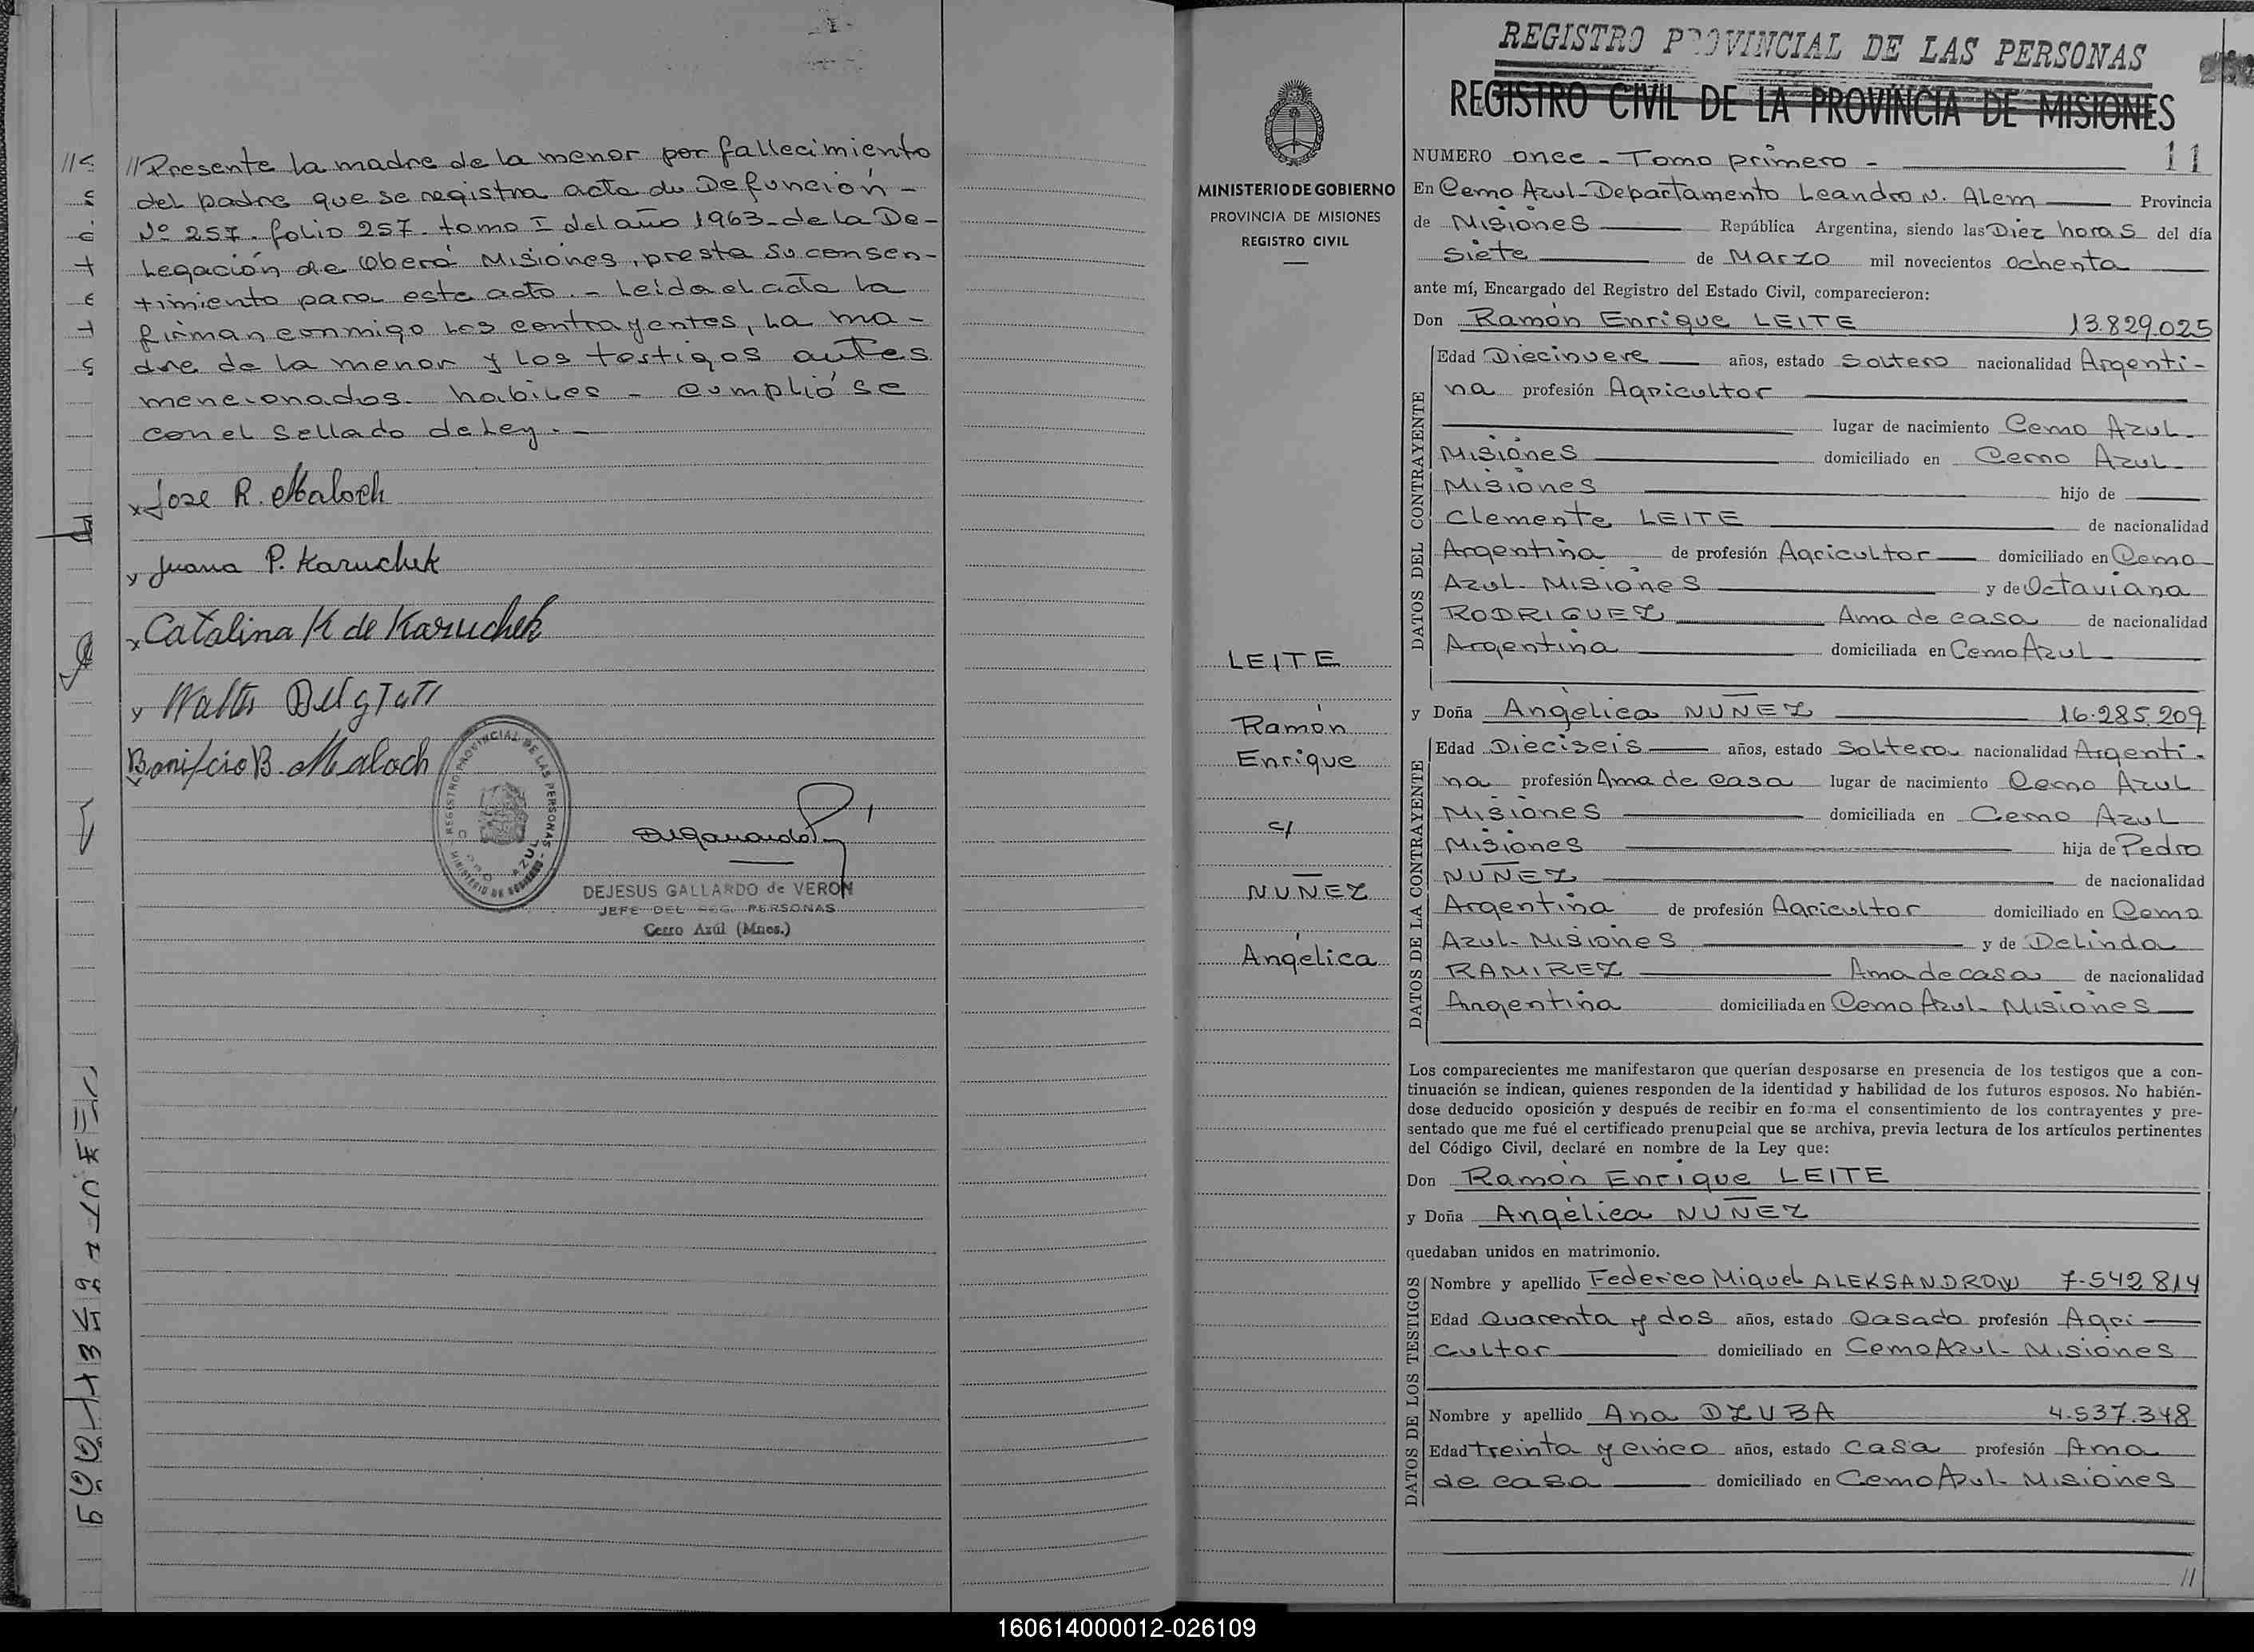 //Presente la madre de la menor por fallecimiento
del padre que se registra acta de Defunción -
Nº 257. folio 257. tomo I del año 1963 - de la De-
Legación de Oberá Misiones, presta su consen-
timiento para este acto. - Leída el acta la
firman conmigo los contrayentes, la ma-
dre de la menor y los testigos antes
mencionados. habiles - cumplióse
con el Sellado de Ley. -
x Jose R. Maloch
x Juana P. Karuchek
x Catalina K de Karuchek
x Walter
Bonifcio B. Maloch
REGISTRO PROVINCIAL DE LAS PERSONAS
AZUL
DEJESUS GALLARDO de VERON
JEFE DEL REG. PERSONAS
Cerro Azúl (Mnes.)
MINISTERIO DE GOBIERNO
PROVINCIA DE MISIONES
REGISTRO CIVIL
LEITE
Ramón
Enrique
c/
NUÑEZ
Angélica
REGISTRO PROVINCIAL DE LAS PERSONAS
REGISTRO CIVIL DE LA PROVINCIA DE MISIONES
NUMERO once - Tomo primero - 11
En Cerro Azul - Departamento Leandro N. Alem Provincia
de Misiones República Argentina, siendo las Diez horas del día
Siete de Marzo mil novecientos ochenta
ante mí, Encargado del Registro del Estado Civil, comparecieron:
Don Ramón Enrique LEITE 13.829.025
DATOS DEL CONTRAYENTE
Edad Diecinueve años, estado Soltero nacionalidad Argenti-
na profesión Agricultor
lugar de nacimiento Cerro Azul -
Misiones domiciliado en Cerro Azul -
Misiones hijo de
Clemente LEITE de nacionalidad
Argentina de profesión Agricultor domiciliado en Cerro
Azul - Misiones y de Octaviana
RODRIGUEZ Ama de casa de nacionalidad
Argentina domiciliada en Cerro Azul
y Doña Angélica NUÑEZ 16.285.209
DATOS DE LA CONTRAYENTE
Edad Dieciseis años, estado Soltera nacionalidad Argenti-
na profesión Ama de casa lugar de nacimiento Cerro Azul
Misiones domiciliada en Cerro Azul
Misiones hija de Pedro
NUÑEZ de nacionalidad
Argentina de profesión Agricultor domiciliado en Cerro
Azul - Misiones y de Delinda
RAMIREZ Ama de casa de nacionalidad
Argentina domiciliada en Cerro Azul - Misiones
Los comparecientes me manifestaron que querían desposarse en presencia de los testigos que a con-
tinuación se indican, quienes responden de la identidad y habilidad de los futuros esposos. No habién-
dose deducido oposición y después de recibir en forma el consentimiento de los contrayentes y pre-
sentado que me fué el certificado prenupcial que se archiva, previa lectura de los artículos pertinentes
del Código Civil, declaré en nombre de la Ley que:
Don Ramón Enrique LEITE
y Doña Angélica NUÑEZ
quedaban unidos en matrimonio.
DATOS DE LOS TESTIGOS
Nombre y apellido Federico Miguel ALEKSANDROW 7.542.814
Edad Quarenta y dos años, estado Casado profesión Agri-
cultor domiciliado en Cerro Azul - Misiones
Nombre y apellido Ana DZUBA 4.537.348
Edad treinta y cinco años, estado casa profesión Ama
de casa domiciliado en Cerro Azul - Misiones
//
160614000012-026109